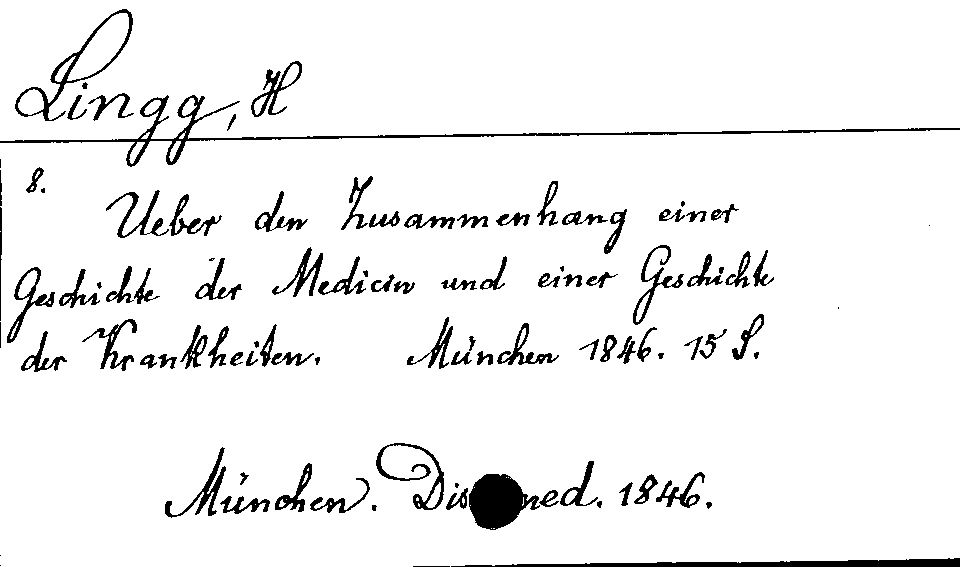 Lingg, H
8.
Ueber den Zusammenhang einer
Geschichte der Medicin und einer Geschichte
der Krankheiten. München 1846. 15 S.
München. Dis med. 1846.